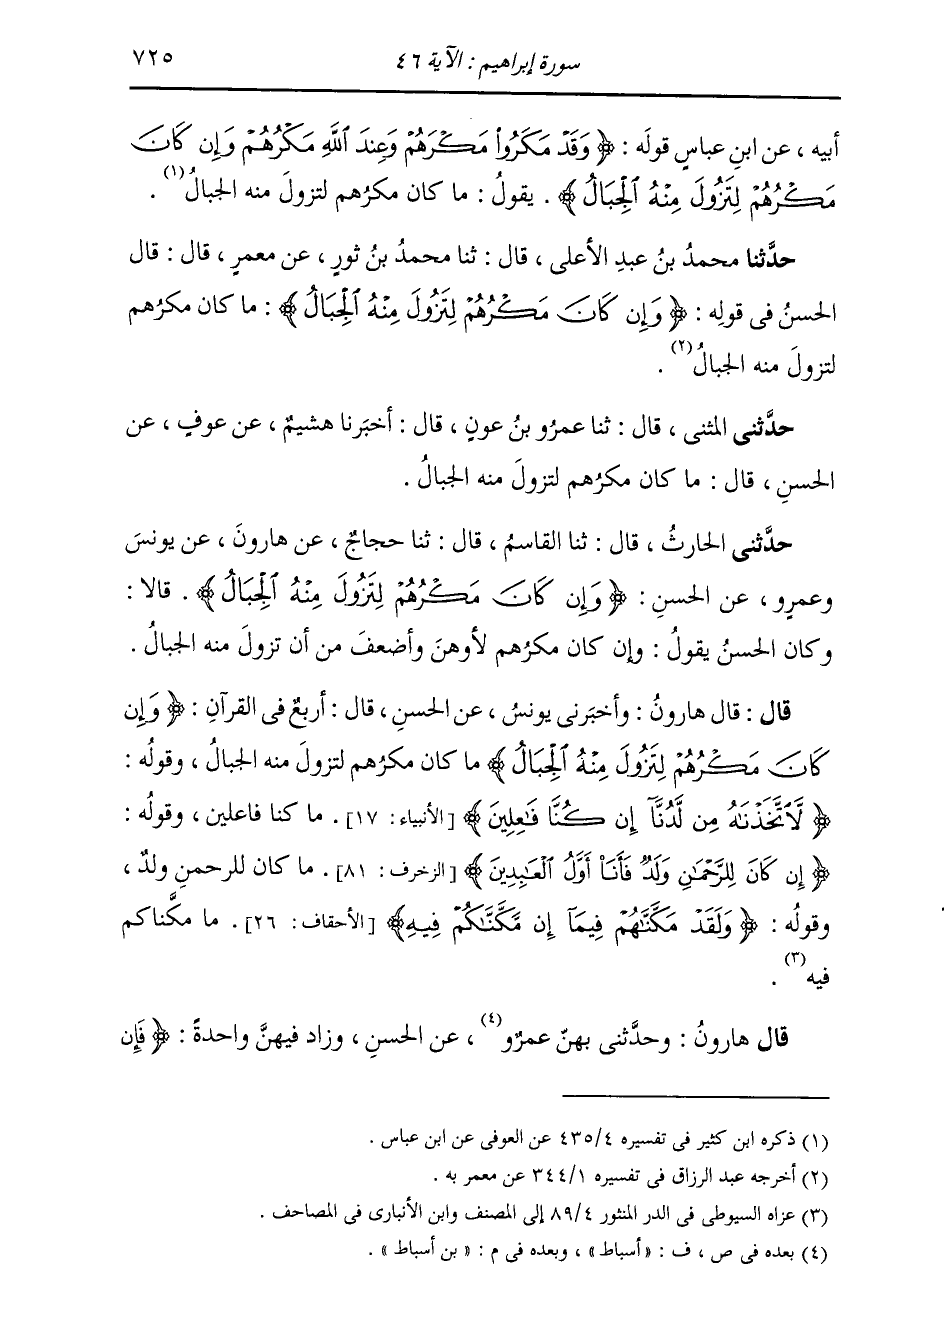 سورة إبراهيم : الآية ٤٦
٧٢٥
أبيه ، عن ابنِ عباسٍ قولَه : ﴿ وَقَدْ مَكَرُوا مَكْرَهُمْ وَعِندَ ٱللَّهِ مَكْرُهُمْ وَإِن كَانَ
مَكْرُهُمْ لِتَزُولَ مِنْهُ ٱلْجِبَالُ ﴾ . يقولُ : ما كان مكرُهم لتزولَ منه الجبالُ(١) .
حدَّثنا محمدُ بنُ عبدِ الأعلى ، قال : ثنا محمدُ بنُ ثورٍ ، عن معمرٍ ، قال : قال
الحسنُ فى قولِه : ﴿ وَإِن كَانَ مَكْرُهُمْ لِتَزُولَ مِنْهُ ٱلْجِبَالُ ﴾ : ما كان مكرُهم
لتزولَ منه الجبالُ(٢) .
حدَّثنى المثنى ، قال : ثنا عمرُو بنُ عونٍ ، قال : أخبَرنا هشيمٌ ، عن عوفٍ ، عن
الحسنِ ، قال : ما كان مكرُهم لتزولَ منه الجبالُ .
حدَّثنى الحارثُ ، قال : ثنا القاسمُ ، قال : ثنا حجاجٌ ، عن هارونَ ، عن يونسَ
وعمرٍو ، عن الحسنِ : ﴿ وَإِن كَانَ مَكْرُهُمْ لِتَزُولَ مِنْهُ ٱلْجِبَالُ ﴾ . قالا :
وكان الحسنُ يقولُ : وإن كان مكرُهم لأوهنَ وأضعفَ من أن تزولَ منه الجبالُ .
قال : قال هارونُ : وأخبَرنى يونسُ ، عن الحسنِ ، قال : أربعٌ فى القرآنِ : ﴿ وَإِن
كَانَ مَكْرُهُمْ لِتَزُولَ مِنْهُ ٱلْجِبَالُ ﴾ ما كان مكرُهم لتزولَ منه الجبالُ ، وقولُه :
﴿ لَّٱتَّخَذْنَٰهُ مِن لَّدُنَّآ إِن كُنَّا فَٰعِلِينَ ﴾ [الأنبياء : ١٧] . ما كنا فاعلين ، وقولُه :
﴿ إِن كَانَ لِلرَّحْمَٰنِ وَلَدٌ فَأَنَا۠ أَوَّلُ ٱلْعَٰبِدِينَ ﴾ [الزخرف : ٨١] . ما كان للرحمنِ ولدٌ ،
وقولُه : ﴿ وَلَقَدْ مَكَّنَّٰهُمْ فِيمَآ إِن مَّكَّنَّٰكُمْ فِيهِ ﴾ [الأحقاف : ٢٦] . ما مكَّناكم
فيه(٣) .
قال هارونُ : وحدَّثنى بهنّ عمرٌو(٤) ، عن الحسنِ ، وزاد فيهنَّ واحدةً : ﴿ فَإِن
(١) ذكره ابن كثير فى تفسيره ٤٣٥/٤ عن العوفى عن ابن عباس .
(٢) أخرجه عبد الرزاق فى تفسيره ٣٤٤/١ عن معمر به .
(٣) عزاه السيوطى فى الدر المنثور ٨٩/٤ إلى المصنف وابن الأنبارى فى المصاحف .
(٤) بعده فى ص ، ف : « أسباط » ، وبعده فى م : « بن أسباط » .